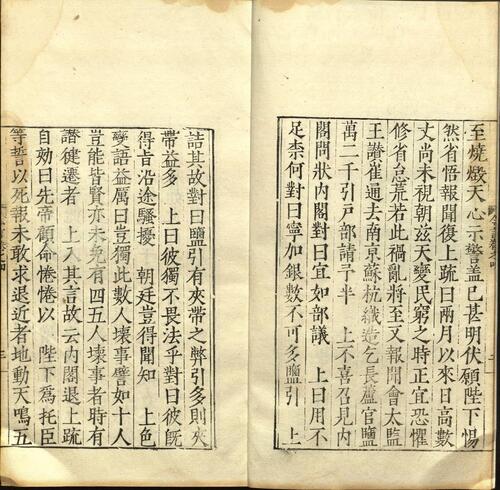 至燒燬天心示警蓋已甚明伏願陛下惕
然省悟報聞復上疏曰兩月以來日高數
丈尚未視朝兹天變民窮之時正宜恐懼
修省怠荒若此禍亂將至又報聞會太監
王讃崔通去南京蘇杭織造乞長蘆官鹽
萬二千引戸部請予半 上不喜召見内
閣問狀内閣對曰宜如部議 上曰用不
足柰何對曰寧加銀數不可多鹽引 上
詰其故對曰鹽引有夾帶之弊引多則夾
帶益多 上曰彼獨不畏法乎對曰彼旣
得旨沿途騷擾 朝廷豈得聞知 上色
變語益厲曰豈獨此數人壞事譬如十人
豈能皆賢亦未免有四五人壞事者時有
譖徤遷者 上入其言故云内閣退上疏
自劾曰先帝顧命惓惓以 陛下爲托臣
等誓以死報未敢求退近者地動天鳴五